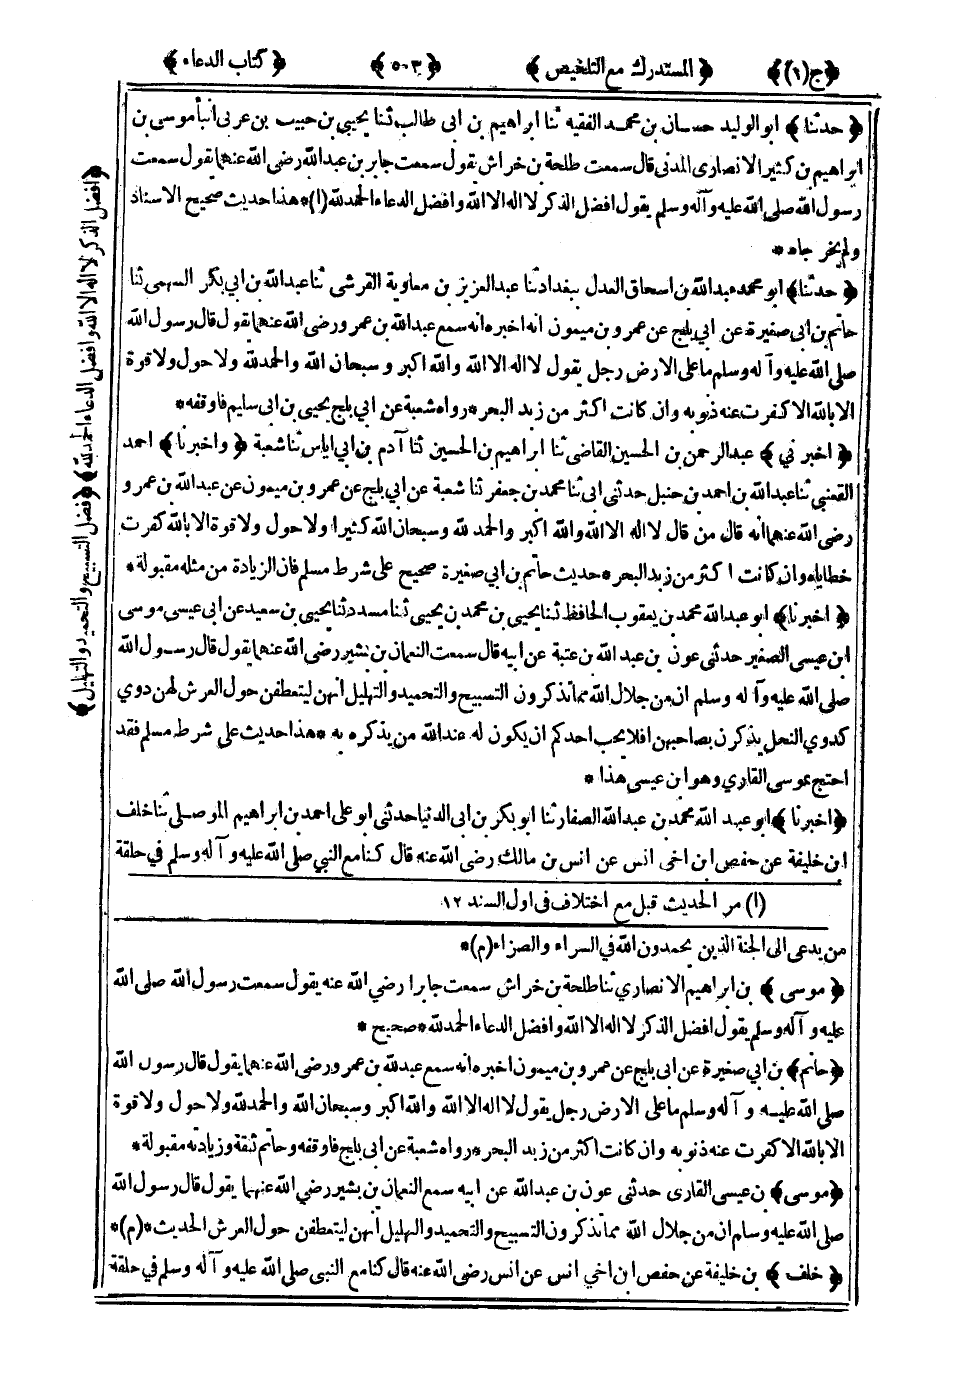 ﴿ ج (١) ﴾ ﴿ المستدرك مع التلخيص ﴾ ﴿ ٥٠٣ ﴾ ﴿ كتاب الدعاء ﴾
﴿ حدثنا ﴾ ابو الوليد حسان بن محمد الفقيه ثنا ابراهيم بن ابى طالب ثنا يحيى بن حبيب بن عربى انبأ موسى بن
ابراهيم بن كثير الانصارى المدنى قال سمعت طلحة بن خراش يقول سمعت جابر بن عبد الله رضى الله عنهما يقول سمعت
رسول الله صلى الله عليه وآله وسلم يقول افضل الذكر لا اله الا الله وافضل الدعاء الحمد لله (١) * هذا حديث صحيح الاسناد
ولم يخرجاه *
﴿ حدثنا ﴾ ابو محمد عبد الله بن اسحاق العدل ببغداد ثنا عبد العزيز بن معاوية القرشى ثنا عبد الله بن ابي بكر السهمى ثنا
حاتم بن ابى صغيرة عن ابي بلج عن عمرو بن ميمون انه اخبره انه سمع عبد الله بن عمرو رضى الله عنهما يقول قال رسول الله
صلى الله عليه وآله وسلم ما على الارض رجل يقول لا اله الا الله والله اكبر وسبحان الله والحمد لله ولا حول ولا قوة
الا بالله الا كفرت عنه ذنوبه وان كانت اكثر من زبد البحر * رواه شعبة عن ابي بلج يحيى بن ابى سليم فاوقفه *
﴿ اخبرني ﴾ عبد الرحمن بن الحسين القاضى ثنا ابراهيم بن الحسين ثنا آدم بن ابي اياس ثنا شعبة ﴿ واخبرنا ﴾ احمد
القعنبي ثنا عبد الله بن احمد بن حنبل حدثنى ابى ثنا محمد بن جعفر ثنا شعبة عن ابي بلج عن عمرو بن ميمون عن عبد الله بن عمرو
رضى الله عنهما انه قال من قال لا اله الا الله والله اكبر والحمد لله وسبحان الله كثيرا ولا حول ولا قوة الا بالله كفرت
خطاياه وان كانت اكثر من زبد البحر * حديث حاتم بن ابي صغيرة صحيح على شرط مسلم فان الزيادة من مثله مقبولة *
﴿ اخبرنا ﴾ ابو عبد الله محمد بن يعقوب الحافظ ثنا يحيى بن محمد بن يحيى ثنا مسدد ثنا يحيى بن سعيد عن ابى عيسى موسى
ابن عيسى الصغير حدثنى عون بن عبد الله بن عتبة عن ابيه قال سمعت النعمان بن بشير رضى الله عنهما يقول قال رسول الله
صلى الله عليه وآله وسلم ان من جلال الله مما تذكرون التسبيح والتحميد والتهليل انهن ليتعطفن حول العرش لهن دوي
كدوي النحل يذكرن بصاحبهن افلا يحب احدكم ان يكون له عند الله من يذكره به * هذا حديث على شرط مسلم فقد
احتج بموسى القاري وهو ابن عيسى هذا *
﴿ اخبرنا ﴾ ابو عبد الله محمد بن عبد الله الصفار ثنا ابو بكر بن ابى الدنيا حدثنى ابو على احمد بن ابراهيم الموصلى ثنا خلف
ابن خليفة عن حفص ابن اخى انس عن انس بن مالك رضى الله عنه قال كنا مع النبي صلى الله عليه وآله وسلم في حلقة
(١) مر الحديث قبل مع اختلاف فى اول السند ١٢
من يدعى الى الجنة الذين يحمدون الله في السراء والضراء (م) *
﴿ موسى ﴾ بن ابراهيم الانصاري ثنا طلحة بن خراش سمعت جابرا رضي الله عنه يقول سمعت رسول الله صلى الله
عليه وآله وسلم يقول افضل الذكر لا اله الا الله وافضل الدعاء الحمد لله * صحيح *
﴿ حاتم ﴾ بن ابي صغيرة عن ابى بلج عن عمرو بن ميمون اخبره انه سمع عبد الله بن عمرو رضى الله عنهما يقول قال رسول الله
صلى الله عليه وآله وسلم ما على الارض رجل يقول لا اله الا الله والله اكبر وسبحان الله والحمد لله ولا حول ولا قوة
الا بالله الا كفرت عنه ذنوبه وان كانت اكثر من زبد البحر * رواه شعبة عن ابى بلج فاوقفه وحاتم ثقة وزيادته مقبولة *
﴿ موسى ﴾ بن عيسى القارى حدثنى عون بن عبد الله عن ابيه سمع النعمان بن بشير رضي الله عنهما يقول قال رسول الله
صلى الله عليه وسلم ان من جلال الله مما تذكرون التسبيح والتحميد والتهليل انهن ليتعطفن حول العرش الحديث * (م) *
﴿ خلف ﴾ بن خليفة عن حفص ابن اخي انس عن انس رضى الله عنه قال كنا مع النبى صلى الله عليه وآله وسلم في حلقة
﴿ افضل الذكر لا اله الا الله وافضل الدعاء الحمد لله ﴾ ﴿ فضل التسبيح والتحميد والتهليل ﴾